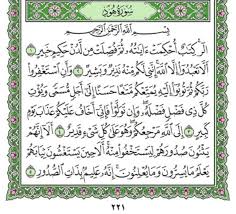 سُورَةُ هُودٍ
بِسْمِ اللَّهِ الرَّحْمَٰنِ الرَّحِيمِ
الٓر كِتَٰبٌ أُحْكِمَتْ ءَايَٰتُهُۥ ثُمَّ فُصِّلَتْ مِن لَّدُنْ حَكِيمٍ خَبِيرٍ ١
أَلَّا تَعْبُدُوٓا۟ إِلَّا ٱللَّهَ إِنَّنِى لَكُم مِّنْهُ نَذِيرٌ وَبَشِيرٌ ٢ وَأَنِ ٱسْتَغْفِرُوا۟
رَبَّكُمْ ثُمَّ تُوبُوٓا۟ إِلَيْهِ يُمَتِّعْكُم مَّتَٰعًا حَسَنًا إِلَىٰٓ أَجَلٍ مُّسَمًّى وَيُؤْتِ
كُلَّ ذِى فَضْلٍ فَضْلَهُۥ وَإِن تَوَلَّوْا۟ فَإِنِّىٓ أَخَافُ عَلَيْكُمْ عَذَابَ يَوْمٍ
كَبِيرٍ ٣ إِلَى ٱللَّهِ مَرْجِعُكُمْ وَهُوَ عَلَىٰ كُلِّ شَىْءٍ قَدِيرٌ ٤ أَلَآ إِنَّهُمْ
يَثْنُونَ صُدُورَهُمْ لِيَسْتَخْفُوا۟ مِنْهُ أَلَا حِينَ يَسْتَغْشُونَ ثِيَابَهُمْ
يَعْلَمُ مَا يُسِرُّونَ وَمَا يُعْلِنُونَ إِنَّهُۥ عَلِيمٌۢ بِذَاتِ ٱلصُّدُورِ ٥
٢٢١